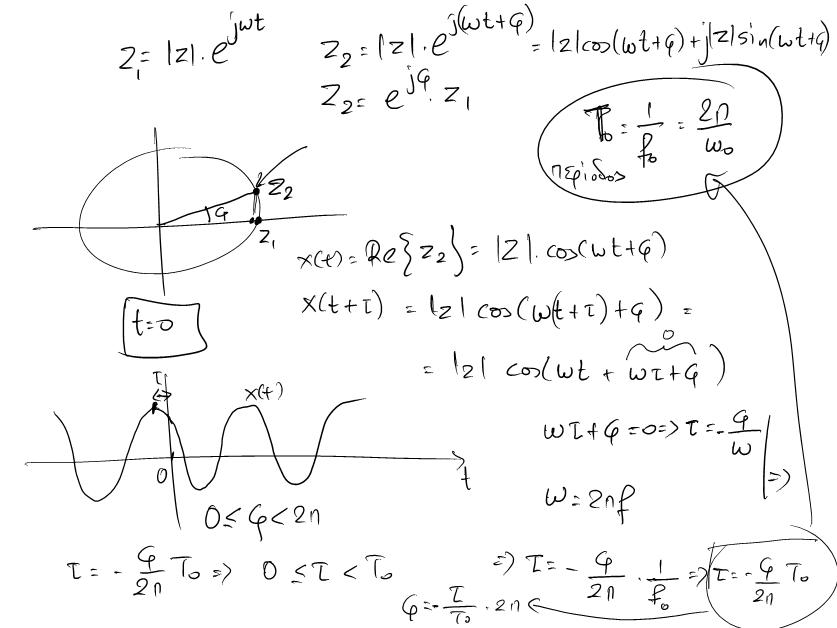 z₁ = |z|·e^{jωt}
z₂ = |z|·e^{j(ωt+φ)} = |z|cos(ωt+φ)+j|z|sin(ωt+φ)
z₂ = e^{jφ}·z₁
T₀ = 1/f₀ = 2π/ω₀
περίοδος
z₂
φ
z₁
x(t) = Re{z₂} = |z|·cos(ωt+φ)
t=0
x(t+τ) = |z| cos(ω(t+τ)+φ) =
0
= |z| cos(ωt + ωτ+φ)
τ
x(t)
ωτ+φ=0 ⇒ τ=-φ/ω
⇒
0
t
ω=2πf
0 ≤ φ < 2π
τ = - φ/2π T₀ ⇒ 0 ≤ τ < T₀
⇒ τ = - φ/2π · 1/f₀ ⇒ τ=-φ/2π T₀
φ=-τ/T₀ · 2π